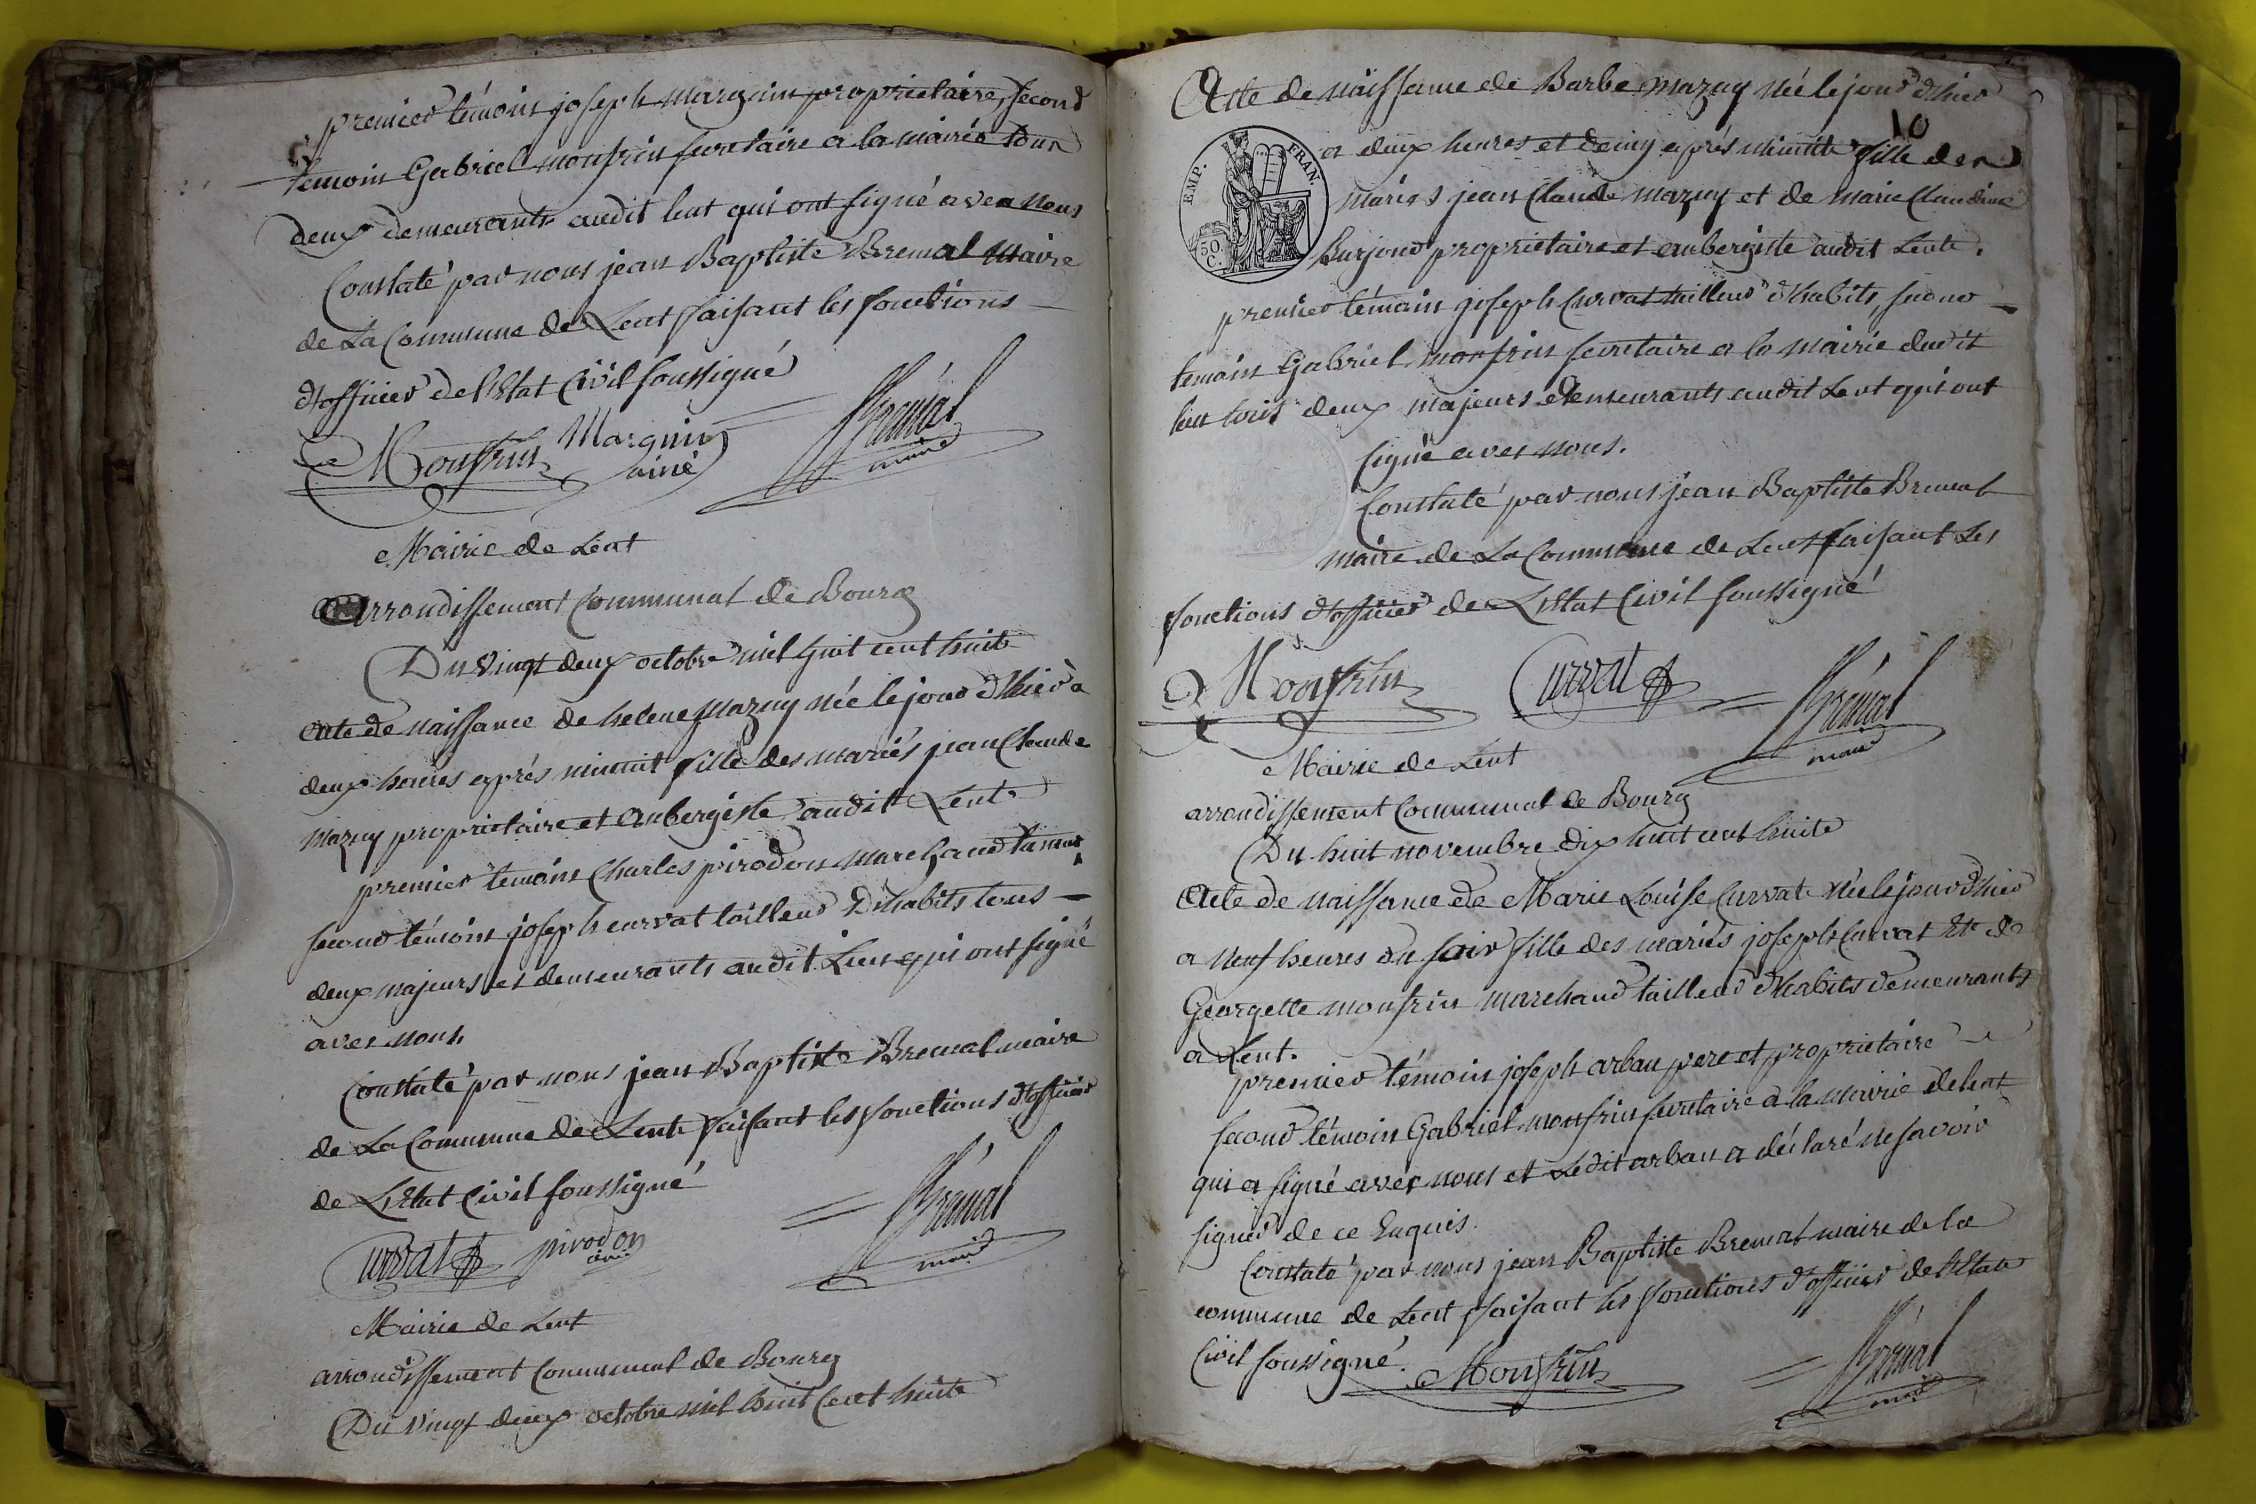 premier témoin joseph marguin proprietaire, second
temoin Gabriel monfrin secretaire a la mairie tous
deux demeurants audit lent qui ont signé avec nous
Constaté par nous jean Baptiste Bremal Maire
de La Commune de Lent faisant les fonctions
d'officier de l'Etat Civil soussigné
Monfrin Marguin Brémal
ainé maire
Mairie de Lent
Arrondissement Communal de Bourg
Du vingt deux octobre mil huit cent huit
acte de naissance de helene mazuy née le jour d'hier a
deux heures après minuit fille des mariés jean Claude
mazuy proprietaire et aubergiste audit Lent
premier temoin Charles pirodon marchand tanneur
second témoin joseph curvat tailleur d'habits tous
deux majeurs et demeurants audit Lieu qui ont signé
avec nous
Constaté par nous jean Baptiste Bremal maire
de La Commune de Lent faisant les fonctions d'officier
de L'Etat Civil soussigné
Curvat pirodon Brémal
ainé maire
Mairie de Lent
arrondissement Communal de Bourg
Du vingt deux octobre mil huit Cent huit
Acte de naissance de Barbe mazuy née le jour d'hier
10
a deux heures et demy après minuit fille des
mariés jean Claude mazuy et de marie Claudine
Burjoud proprietaire et aubergiste audit Lent.
EMP. FRAN.
50 C.
premier témoin joseph Curvat tailleur d'habits, second
temoin Gabriel monfrin secretaire a la mairie dudit
lieu tous deux majeurs demeurants audit Lent qui ont
signé avec nous.
Constaté par nous jean Baptiste Bremal
maire de La Commune de Lent faisant Les
fonctions d'officier de L'Etat Civil soussigné
Monfrin Curvat Brémal
maire
Mairie de Lent
arrondissement Communal de Bourg
Du huit novembre dix huit cent huit
Acte de naissance de Marie Louise Curvat née le jour d'hier
a neuf heures du soir fille des mariés joseph Curvat Et de
Georgette monfrin marchand tailleur d'habits demeurants
a Lent.
premier témoin joseph arban pere et proprietaire
second témoin Gabriel monfrin secretaire a la mairie de lent
qui a signé avec nous et Ledit arban a déclaré ne savoir
signer de ce Enquis.
Constaté par nous jean Baptiste Bremal maire de la
commune de Lent faisant les fonctions d'officier de l'Etat
Civil soussigné.
Monfrin Brémal
maire